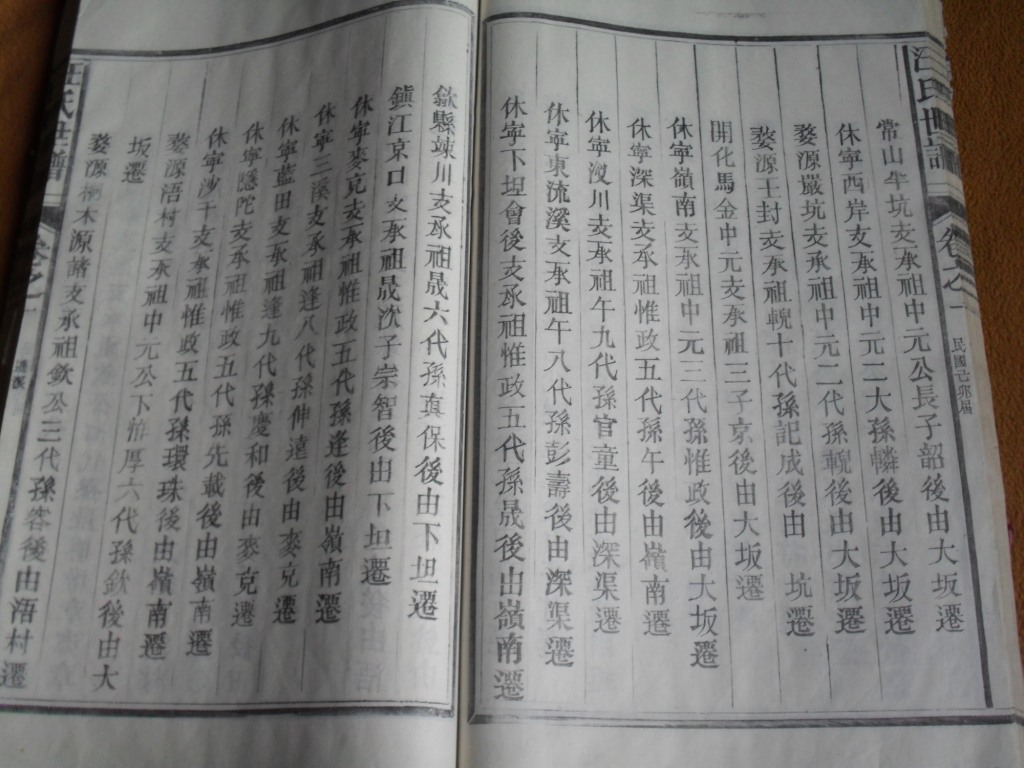 汪氏世譜
卷之一
民國己卯届
常山牛坑支承祖中元公長子韶後由大坂遷
休寧西岸支承祖中元二大孫轔後由大坂遷
婺源嚴坑支承祖中元二代孫輗後由大坂遷
婺源王封支承祖輗十代孫記成後由 坑遷
開化馬金中元支承祖三子京後由大坂遷
休寧嶺南支承祖中元三代孫惟政後由大坂遷
休寧深渠支承祖惟政五代孫午後由嶺南遷
休寧溲川支承祖午九代孫官童後由深渠遷
休寧東流溪支承祖午八代孫彭壽後由深渠遷
休寧下坦會後支承祖惟政五代孫晟後由嶺南遷
歙縣竦川支承祖晟六代孫眞保後由下坦遷
鎮江京口支承祖晟次子崇智後由下坦遷
休寧麥克支承祖惟政五代孫逢後由嶺南遷
休寧三溪支承祖逢八代孫伸遠後由麥克遷
休寧藍田支承祖逢九代孫慶和後由麥克遷
休寧隱陀支承祖惟政五代孫先載後由嶺南遷
休寧沙干支承祖惟政五代孫環珠後由嶺南遷
婺源浯村支承祖中元公下怡厚六代孫欽後由大
坂遷
婺源 木源諧支承祖欽公三代孫容後由浯村遷
汪氏世譜
卷之一